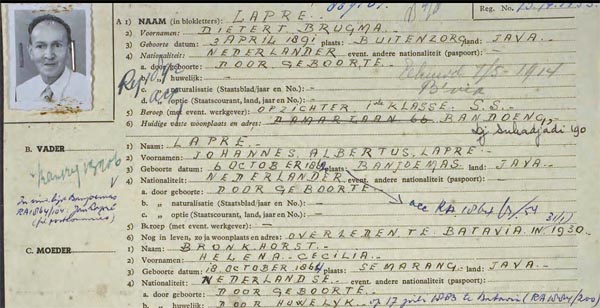 Reg. No.
A 1) NAAM (in blokletters): LAPRE.
2) Voornamen: DIETERT BRUGMA
3) Geboorte datum: 3 APRIL 1891 plaats: BUITENZORG land: JAVA
4) Nationaliteit: NEDERLANDER event. andere nationaliteit (paspoort): —
a. door geboorte: DOOR GEBOORTE.
b. „ huwelijk: —
c. „ naturalisatie (Staatsblad/jaar en No.): —
d. „ optie (Staatscourant, land, jaar en No.): —
5) Beroep (met event. werkgever): OPZICHTER 1ste KLASSE. S.S.
6) Huidige vaste woonplaats en adres: DAMARLAAN 66 BANDOENG,
Dj Sukadjadi 190
B. VADER
1) Naam: LAPRE.
2) Voornamen: JOHANNES, ALBERTUS, LAPRE.
3) Geboorte datum: 6 OCTOBER 1864 plaats: BANJOEMAS land: JAVA
4) Nationaliteit: NEDERLANDER event. andere nationaliteit (paspoort):
a. door geboorte: DOOR GEBOORTE.
b. „ naturalisatie (Staatsblad, land, jaar en No.): —
c. „ optie (Staatscourant, land, jaar en No.): —
5) Beroep (met event. werkgever): —
6) Nog in leven, zo ja woonplaats en adres: OVERLEDEN TE BATAVIA IN 1930.
C. MOEDER
1) Naam: BRONKHORST.
2) Voornamen: HELENA CECILIA
3) Geboorte datum: 18 OCTOBER 1864 plaats: SEMARANG land: JAVA
4) Nationaliteit: NEDERLANDSE event. andere nationaliteit (paspoort):
a. door geboorte: DOOR GEBOORTE.
b. „ huwelijk: DOOR HUWELYK